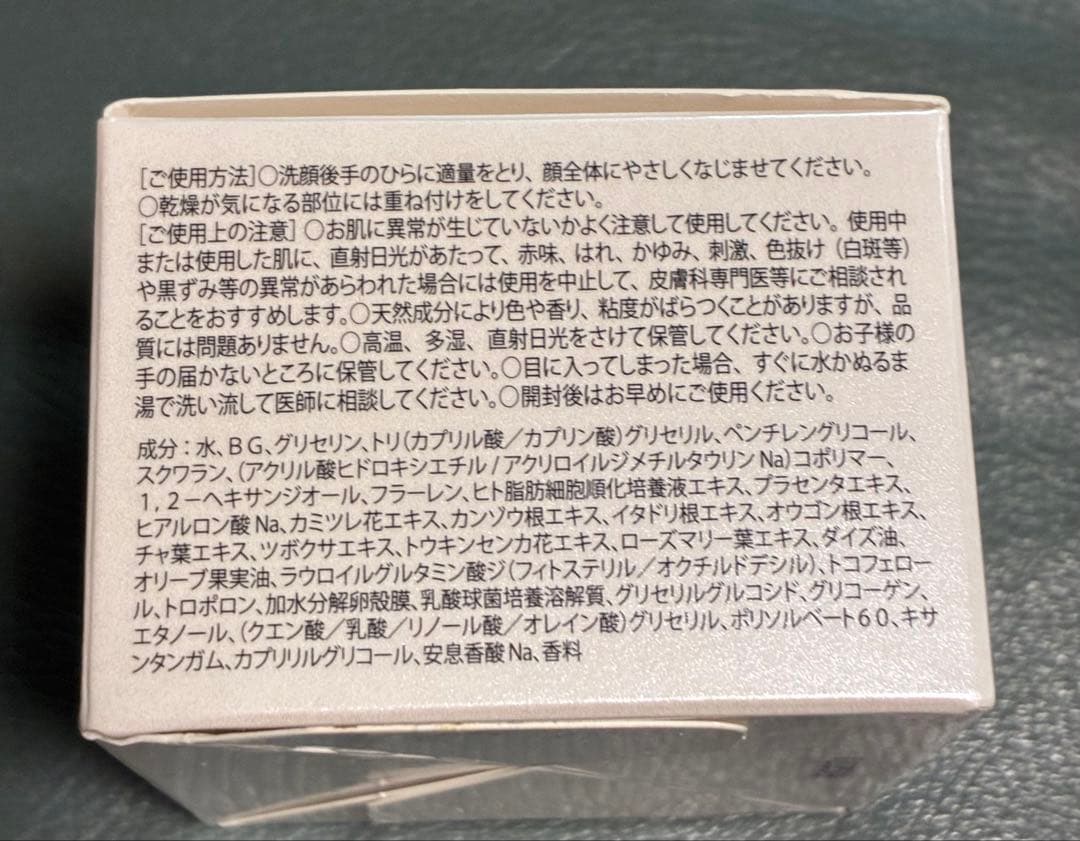 [ご使用方法]○洗顔後手のひらに適量をとり、顔全体にやさしくなじませてください。
○乾燥が気になる部位には重ね付けをしてください。
[ご使用上の注意]○お肌に異常が生じていないかよく注意して使用してください。使用中
または使用した肌に、直射日光があたって、赤味、はれ、かゆみ、刺激、色抜け（白斑等）
や黒ずみ等の異常があらわれた場合には使用を中止して、皮膚科専門医等にご相談され
ることをおすすめします。○天然成分により色や香り、粘度がばらつくことがありますが、品
質には問題ありません。○高温、多湿、直射日光をさけて保管してください。○お子様の
手の届かないところに保管してください。○目に入ってしまった場合、すぐに水かぬるま
湯で洗い流して医師に相談してください。○開封後はお早めにご使用ください。
成分：水、BG、グリセリン、トリ(カプリル酸／カプリン酸)グリセリル、ペンチレングリコール、
スクワラン、(アクリル酸ヒドロキシエチル/アクリロイルジメチルタウリンNa)コポリマー、
1,2－ヘキサンジオール、フラーレン、ヒト脂肪細胞順化培養液エキス、プラセンタエキス、
ヒアルロン酸Na、カミツレ花エキス、カンゾウ根エキス、イタドリ根エキス、オウゴン根エキス、
チャ葉エキス、ツボクサエキス、トウキンセンカ花エキス、ローズマリー葉エキス、ダイズ油、
オリーブ果実油、ラウロイルグルタミン酸ジ(フィトステリル／オクチルドデシル)、トコフェロー
ル、トロポロン、加水分解卵殻膜、乳酸球菌培養溶解質、グリセリルグルコシド、グリコーゲン、
エタノール、(クエン酸／乳酸／リノール酸／オレイン酸)グリセリル、ポリソルベート60、キサ
ンタンガム、カプリリルグリコール、安息香酸Na、香料